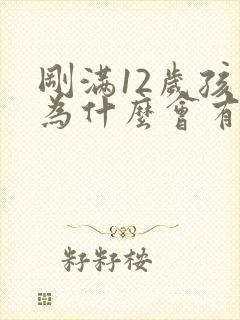 剛滿12歲孩
為什麼會有
籽籽桉